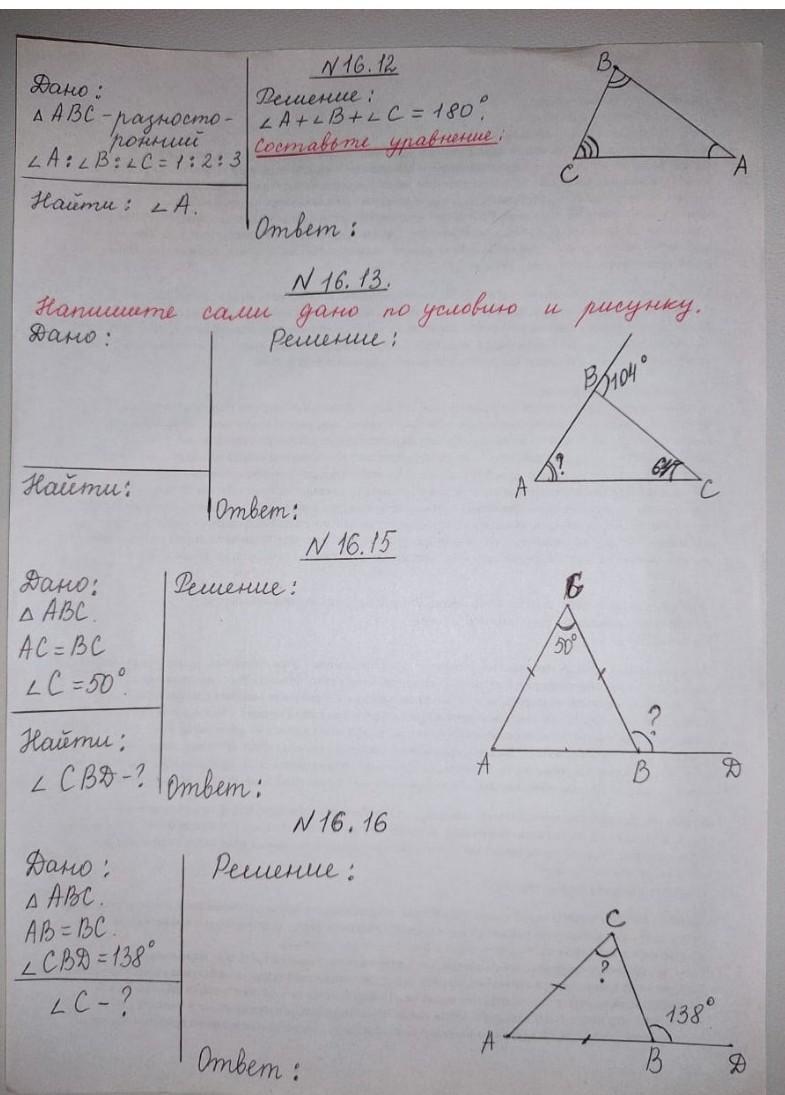 N 16.12
Дано:
△ ABC - разносто-
ронний
∠A:∠B:∠C = 1:2:3
Найти: ∠A.
Решение:
∠A+∠B+∠C = 180°.
Составьте уравнение:
Ответ:
B
C
A
N 16.13.
Напишите сами дано по условию и рисунку.
Дано:
Найти:
Решение:
Ответ:
B 104°
A ?
C
N 16.15
Дано:
△ ABC.
AC = BC
∠C = 50°.
Найти:
∠ CBD - ?
Решение:
Ответ:
C
50°
?
A
B
D
N 16.16
Дано:
△ ABC.
AB = BC.
∠CBD = 138°
∠C - ?
Решение:
Ответ:
C
?
138°
A
B
D